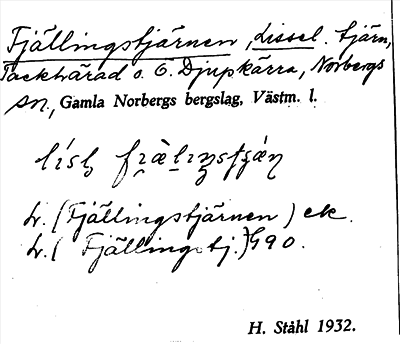 Fjällingstjärnen, Lissel. tjärn,
Tackhärad o. Ö. Djupkärra, Norbergs
sn, Gamla Norbergs bergslag, Västm. l.
Lr. (Fjällingstjärnen) ek.
Lr. (Fjällingstj.) G90.
H. Ståhl 1932.